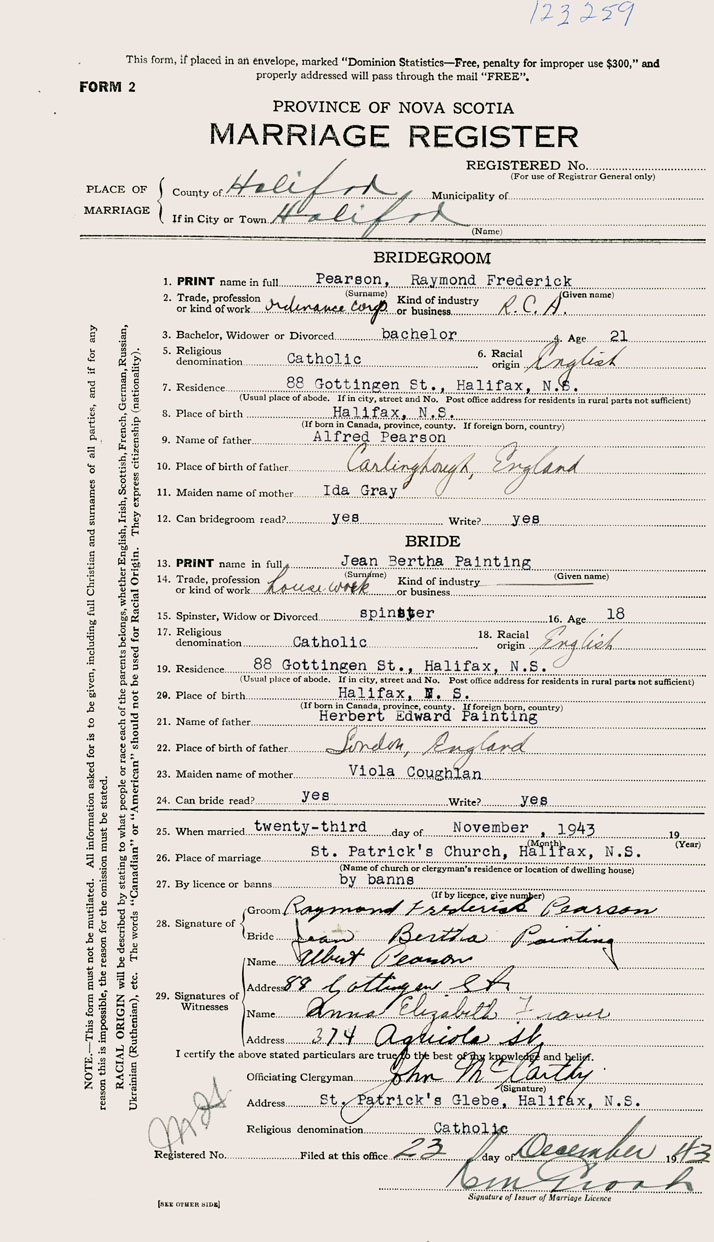 123259
This form, if placed in an envelope, marked "Dominion Statistics—Free, penalty for improper use $300," and
properly addressed will pass through the mail "FREE".
FORM 2
PROVINCE OF NOVA SCOTIA
MARRIAGE REGISTER
REGISTERED No.
(For use of Registrar General only)
PLACE OF MARRIAGE
County of Halifax Municipality of
If in City or Town Halifax
(Name)
BRIDEGROOM
1. PRINT name in full Pearson, Raymond Frederick
(Surname) (Given name)
2. Trade, profession or kind of work ordinance corp Kind of industry or business R.C.A.
3. Bachelor, Widower or Divorced bachelor 4. Age 21
5. Religious denomination Catholic 6. Racial origin English
7. Residence 88 Gottingen St., Halifax, N.S.
(Usual place of abode. If in city, street and No. Post office address for residents in rural parts not sufficient)
8. Place of birth Halifax, N.S.
(If born in Canada, province, county. If foreign born, country)
9. Name of father Alfred Pearson
10. Place of birth of father England
11. Maiden name of mother Ida Gray
12. Can bridegroom read? yes Write? yes
BRIDE
13. PRINT name in full Jean Bertha Painting
(Surname) (Given name)
14. Trade, profession or kind of work housework Kind of industry or business
15. Spinster, Widow or Divorced spinster 16. Age 18
17. Religious denomination Catholic 18. Racial origin English
19. Residence 88 Gottingen St., Halifax, N.S.
(Usual place of abode. If in city, street and No. Post office address for residents in rural parts not sufficient)
20. Place of birth Halifax, N. S.
(If born in Canada, province, county. If foreign born, country)
21. Name of father Herbert Edward Painting
22. Place of birth of father London, England
23. Maiden name of mother Viola Coughlan
24. Can bride read? yes Write? yes
25. When married twenty-third day of November, 1943 19
(Month) (Year)
26. Place of marriage St. Patrick's Church, Halifax, N.S.
(Name of church or clergyman's residence or location of dwelling house)
27. By licence or banns by banns
(If by licence, give number)
28. Signature of
Groom Raymond Frederick Pearson
Bride Jean Bertha Painting
29. Signatures of Witnesses
Name Albert Pearson
Address 88 Gottingen St.
Name Anna Elizabeth Fraser
Address 374 Agricola St.
I certify the above stated particulars are true to the best of my knowledge and belief.
Officiating Clergyman John McCarthy
(Signature)
Address St. Patrick's Glebe, Halifax, N.S.
Religious denomination Catholic
Registered No. Filed at this office 23 day of December 1943
Signature of Issuer of Marriage Licence
[SEE OTHER SIDE]
NOTE.—This form must not be mutilated. All information asked for is to be given, including full Christian and surnames of all parties, and if for any
reason this is impossible, the reason for the omission must be stated.
RACIAL ORIGIN will be described by stating to what people or race each of the parents belongs, whether English, Irish, Scottish, French, German, Russian,
Ukrainian (Ruthenian), etc. The words "Canadian" or "American" should not be used for Racial Origin. They express citizenship (nationality).